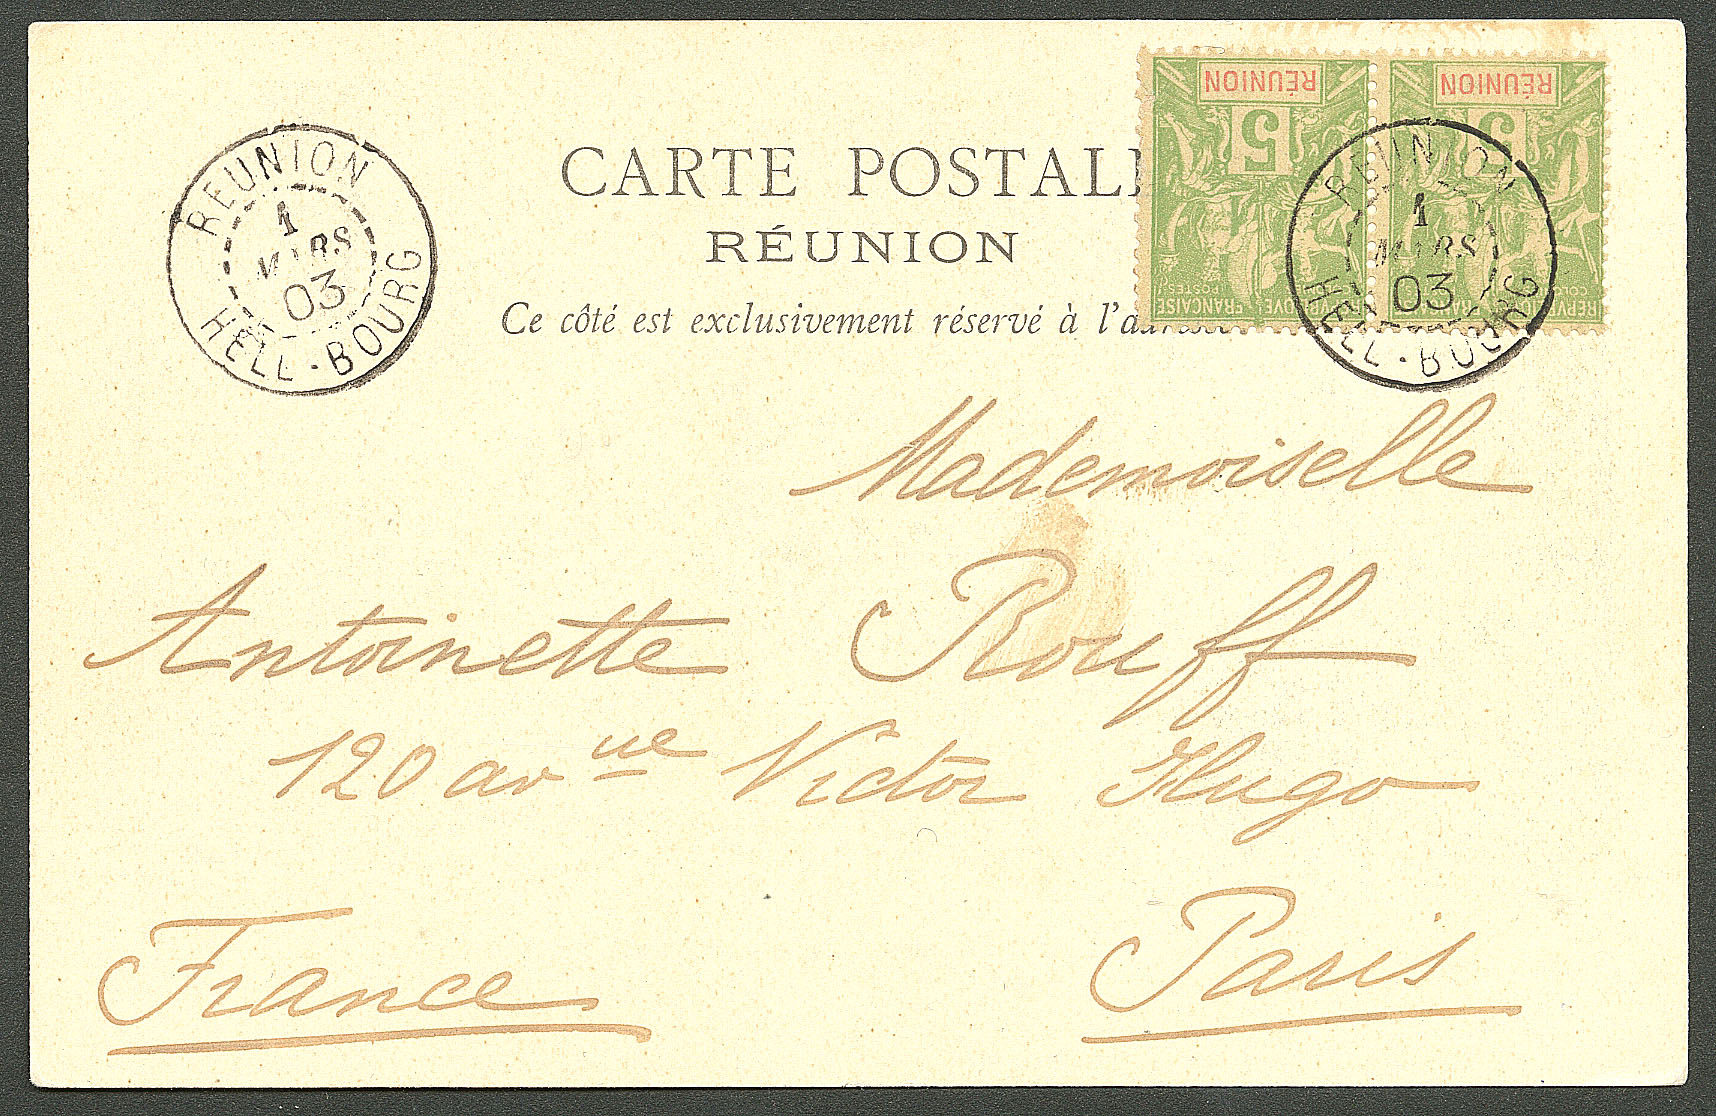 CARTE POSTAL
RÉUNION
Ce côté est exclusivement réservé à l'a
REUNION
1
MARS
03
HELL-BOURG
RÉUNION
5
RÉUNION
5
REUNION
1
MARS
03
HELL-BOURG
Mademoiselle
Antoinette Rouff
120 avue Victor Hugo
Paris
France